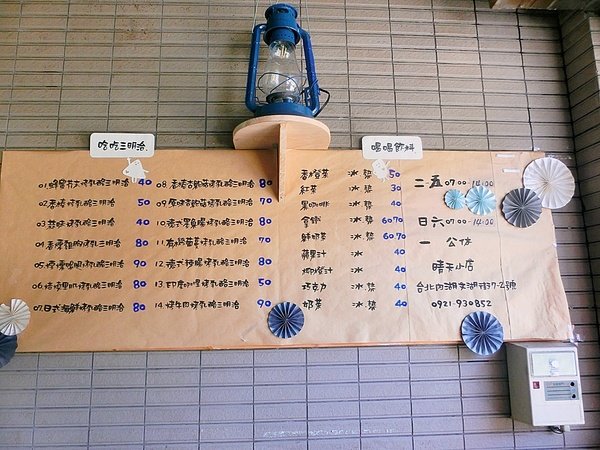 吃吃三明治
01.蜂蜜芥末烤乳酪三明治 40
02.香橙烤乳酪三明治 50
03.蒜味烤乳酪三明治 40
04.香煙雞胸烤乳酪三明治 80
05.煙燻鴨胸烤乳酪三明治 90
06.培根里肌烤乳酪三明治 80
07.日式海鮮烤乳酪三明治 80
08.香橙 烤乳酪三明治 80
09.原味 烤乳酪三明治 70
10.德式 烤乳酪三明治 80
11.有機 烤乳酪三明治 70
12.德式辣腸烤乳酪三明治 80
13.印度咖哩烤乳酪三明治 50
14.烤牛肉烤乳酪三明治 90
喝喝飲料
香橙茶 冰 熱 50
紅茶 冰 熱 30
黑咖啡 冰 熱 40
拿鐵 冰 熱 60.70
鮮奶茶 冰 熱 60.70
蘋果汁 冰 40
柳橙汁 冰 40
巧克力 冰 熱 40
奶茶 冰 熱 40
二~五 07:00-14:00
日六 07:00-14:00
一 公休
晴天小店
台北內湖文湖街37-2號
0921-930852